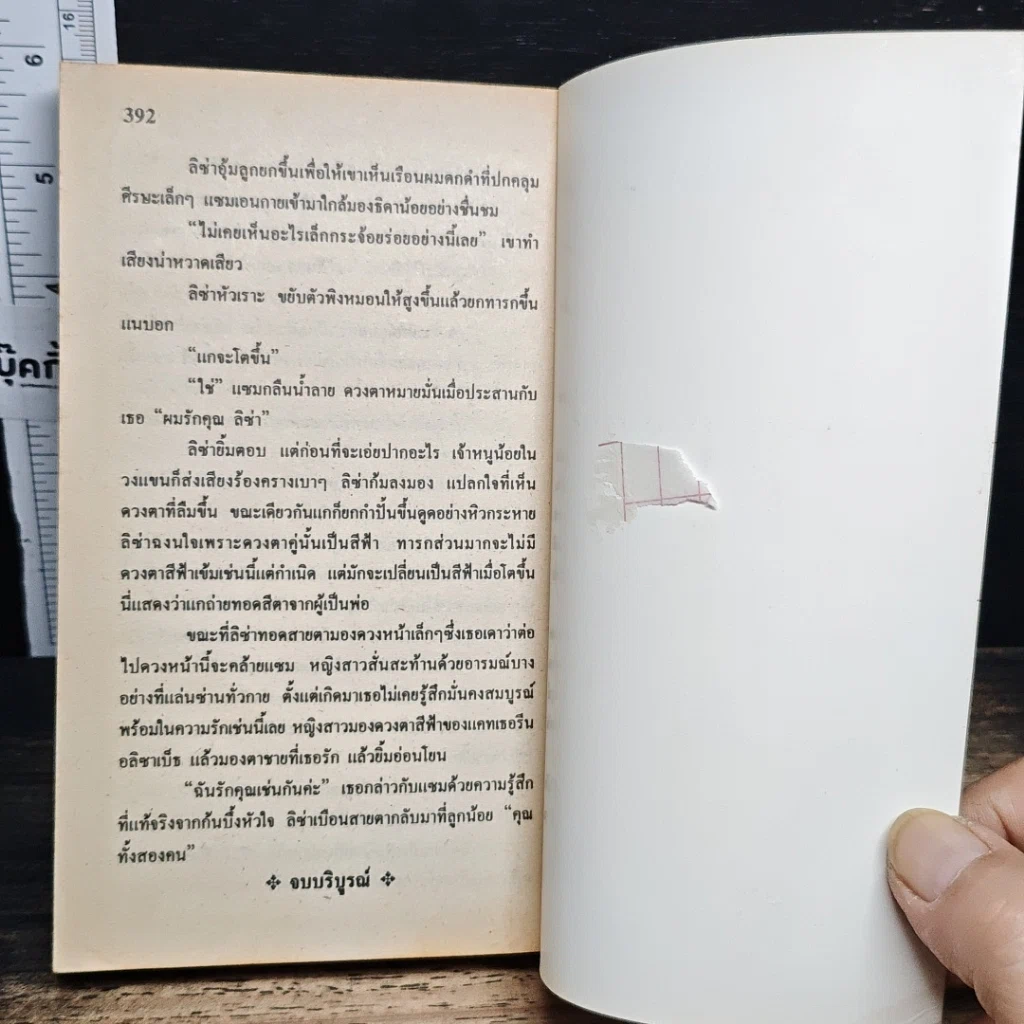 392
ลิซ่าอุ้มลูกยกขึ้นเพื่อให้เขาเห็นเรือนผมดกดำที่ปกคลุม
ศีรษะเล็กๆ แซมเอนกายเข้ามาใกล้มองธิดาน้อยอย่างชื่นชม
“ไม่เคยเห็นอะไรเล็กกระจ้อยร่อยอย่างนี้เลย” เขาทำ
เสียงน่าหวาดเสียว
ลิซ่าหัวเราะ ขยับตัวพิงหมอนให้สูงขึ้นแล้วยกทารกขึ้น
แนบอก
“แกจะโตขึ้น”
“ใช่” แซมกลืนน้ำลาย ดวงตาหมายมั่นเมื่อประสานกับ
เธอ “ผมรักคุณ ลิซ่า”
ลิซ่ายิ้มตอบ แต่ก่อนที่จะเอ่ยปากอะไร เจ้าหนูน้อยใน
วงแขนก็ส่งเสียงร้องครางเบาๆ ลิซ่าก้มลงมอง แปลกใจที่เห็น
ดวงตาที่ลืมขึ้น ขณะเดียวกันแกก็ยกกำปั้นขึ้นดูดอย่างหิวกระหาย
ลิซ่าฉงนใจเพราะดวงตาคู่นั้นเป็นสีฟ้า ทารกส่วนมากจะไม่มี
ดวงตาสีฟ้าเข้มเช่นนี้แต่กำเนิด แต่มักจะเปลี่ยนเป็นสีฟ้าเมื่อโตขึ้น
นี่แสดงว่าแกถ่ายทอดสีตาจากผู้เป็นพ่อ
ขณะที่ลิซ่าทอดสายตามองดวงหน้าเล็กๆซึ่งเธอเดาว่าต่อ
ไปดวงหน้านี้จะคล้ายแซม หญิงสาวสั่นสะท้านด้วยอารมณ์บาง
อย่างที่แล่นซ่านทั่วกาย ตั้งแต่เกิดมาเธอไม่เคยรู้สึกมั่นคงสมบูรณ์
พร้อมในความรักเช่นนี้เลย หญิงสาวมองดวงตาสีฟ้าของแคทเธอรีน
อลิซาเบ็ธ แล้วมองตาชายที่เธอรัก แล้วยิ้มอ่อนโยน
“ฉันรักคุณเช่นกันค่ะ” เธอกล่าวกับแซมด้วยความรู้สึก
ที่แท้จริงจากก้นบึ้งหัวใจ ลิซ่าเบือนสายตากลับมาที่ลูกน้อย “คุณ
ทั้งสองคน”
จบบริบูรณ์
16
6
5
4